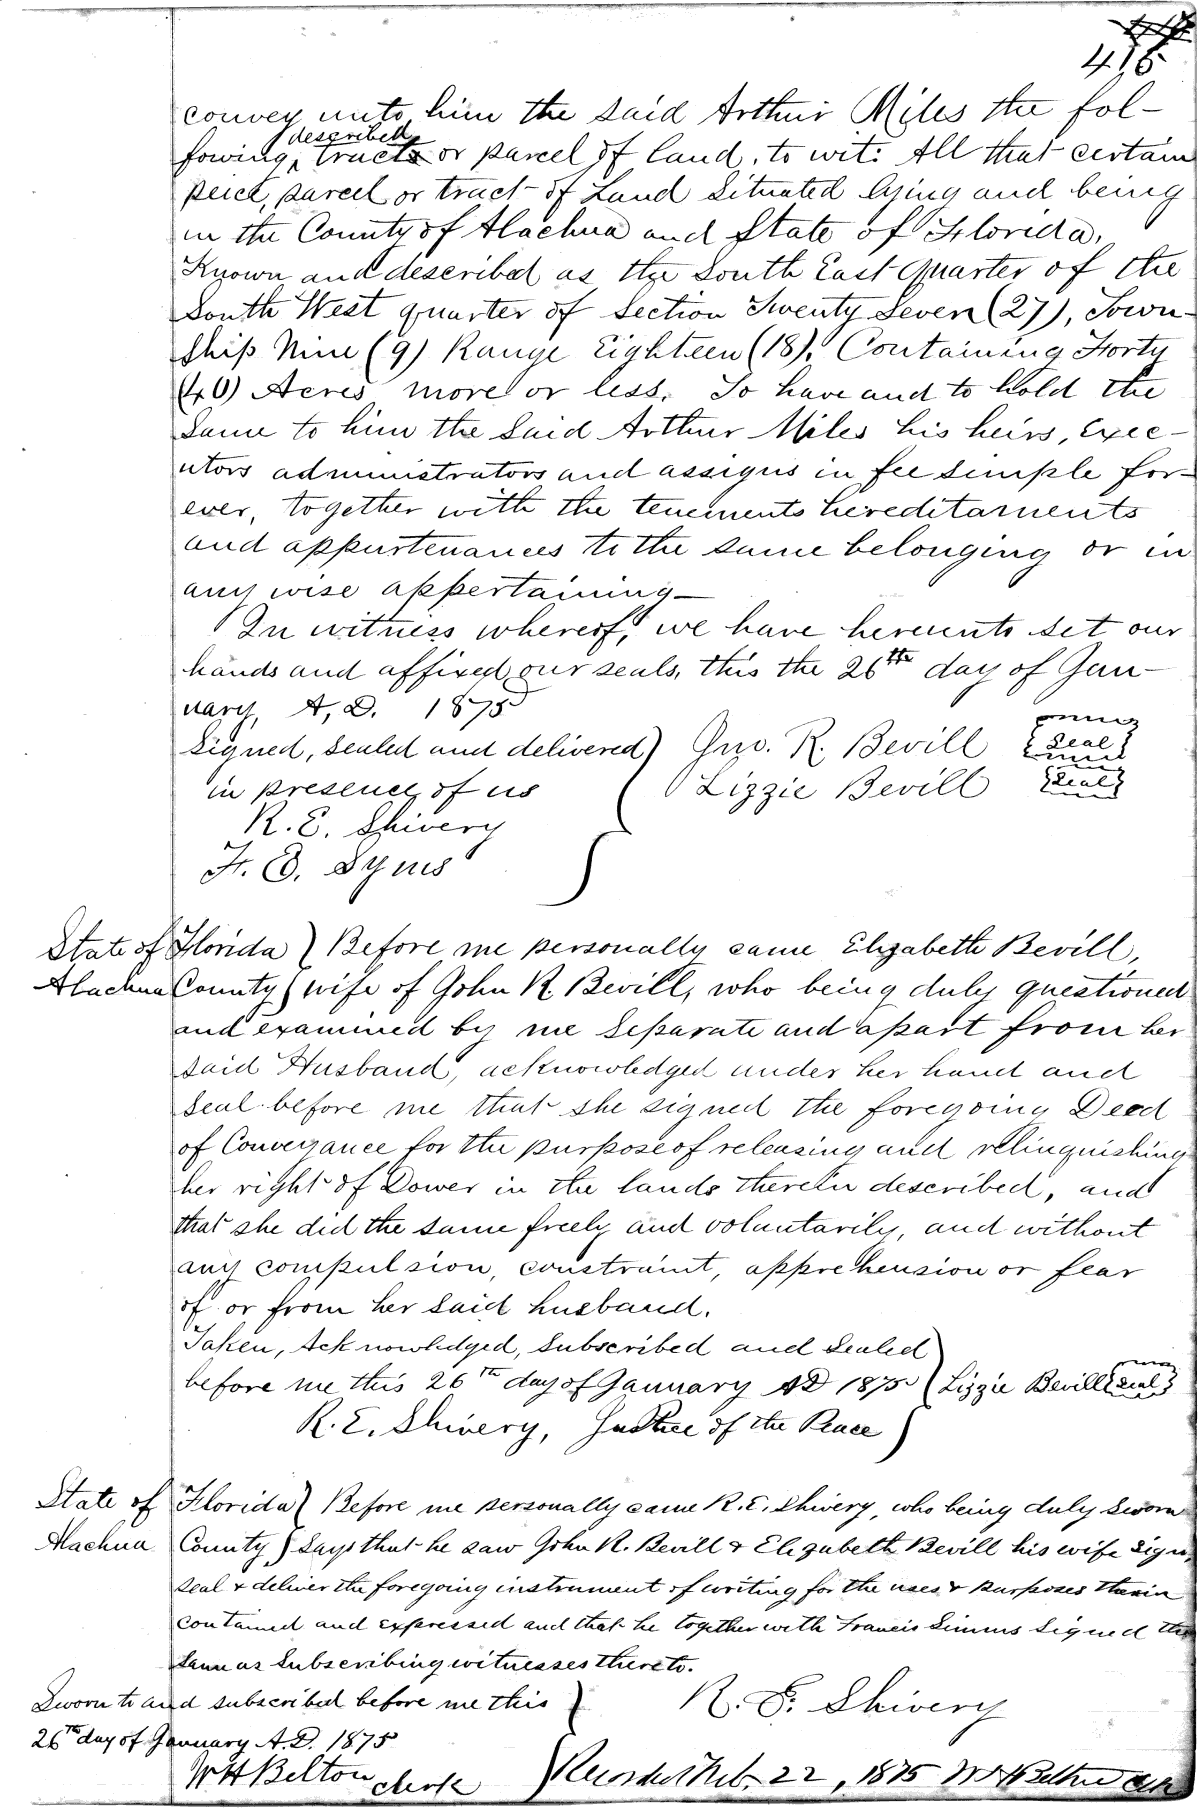 415
convey unto him the said Arthur Miles the fol-
lowing described tract or parcel of land, to wit: All that certain
peice, parcel or tract of Land Situated lying and being
in the County of Alachua and State of Florida,
Known and described as the South East quarter of the
South West quarter of Section Twenty Seven (27), Town-
ship Nine (9) Range Eighteen (18), Containing Forty
(40) Acres more or less. To have and to hold the
same to him the said Arthur Miles his heirs, Exec-
utors administrators and assigns in fee simple for-
ever, together with the tenements hereditaments
and appurtenances to the same belonging or in
any wise appertaining—
In witness whereof, we have hereunto set our
hands and affixed our seals, this the 26th day of Jan-
uary, A.D. 1875
Signed, sealed and delivered) Jno. R. Bevill {Seal}
in presence of us Lizzie Bevill {Seal}
R. E. Shivery
F. O. Syms
State of Florida ) Before me personally came Elizabeth Bevill,
Alachua County ) wife of John R. Bevill, who being duly questioned
and examined by me Separate and apart from her
said Husband, acknowledged under her hand and
seal before me that she signed the foregoing Deed
of Conveyance for the purpose of releasing and relinquishing
her right of Dower in the lands therein described, and
that she did the same freely and voluntarily, and without
any compulsion, constraint, apprehension or fear
of or from her said husband.
Taken, Acknowledged, Subscribed and Sealed
before me this 26th day of January AD 1875 ( Lizzie Bevill {Seal}
R. E. Shivery, Justice of the Peace )
State of Florida ( Before me personally came R. E. Shivery, who being duly sworn
Alachua County ) Says that he saw John R. Bevill & Elizabeth Bevill his wife sign,
seal & deliver the foregoing instrument of writing for the uses & purposes therein
contained and expressed and that he together with Francis Simms Signed the
same as Subscribing witnesses thereto.
Sworn to and subscribed before me this ) R. E. Shivery
26th day of January A.D. 1875
W H Belton Clerk ) Recorded Feb. 22, 1875 W H Belton Clk